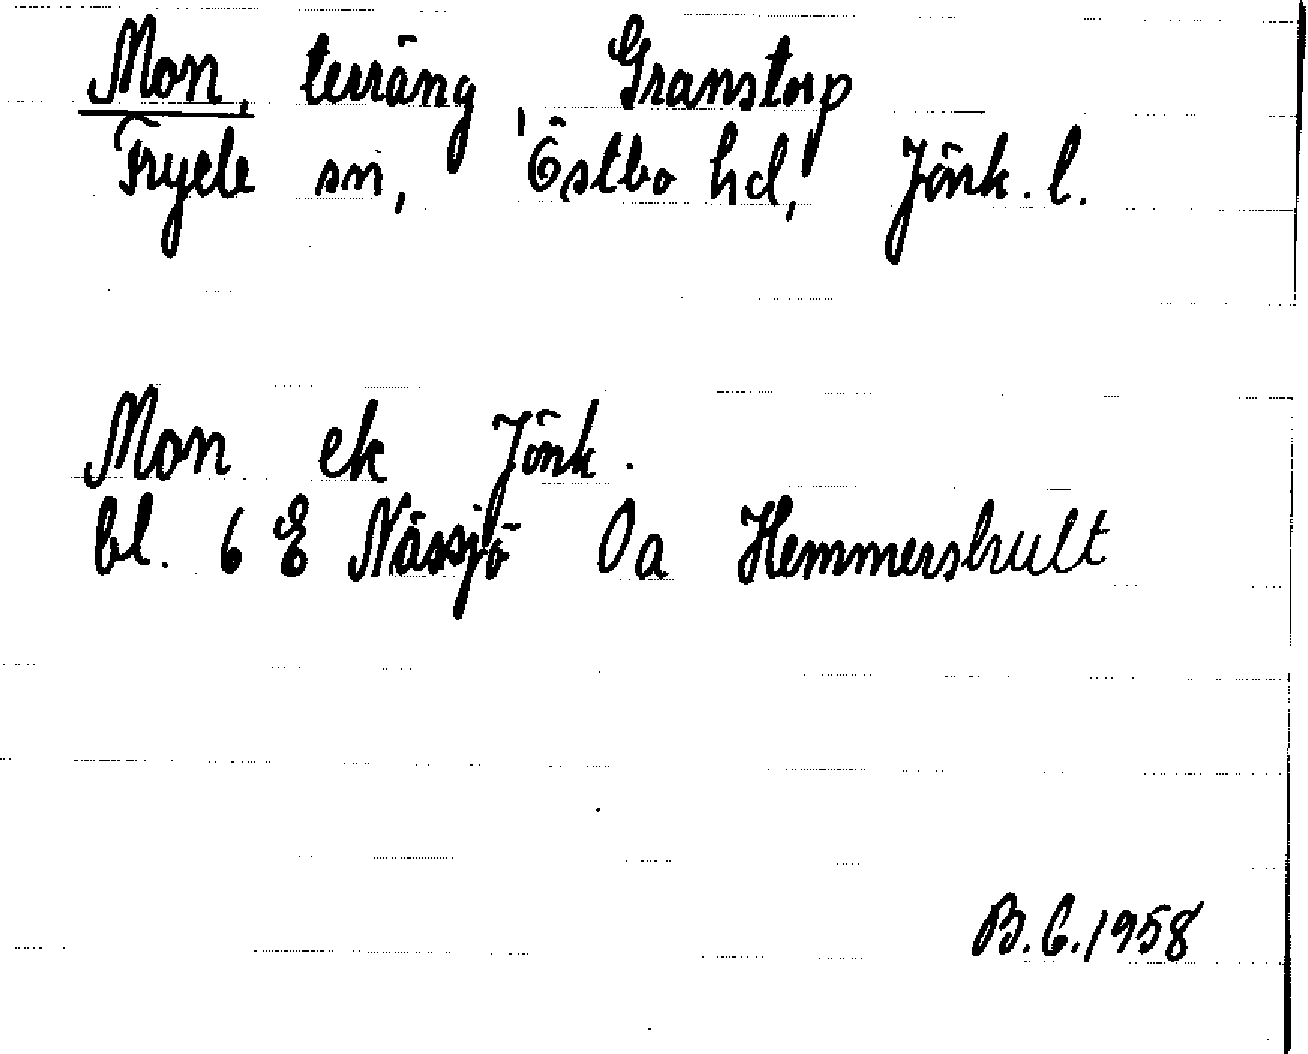 Mon, terräng, Granstorp,
Fryele sn, Östbo hd, Jönk. l.
Mon ek Jönk.
bl. 6 E Nässjö 0a Hemmershult
B.C.1958